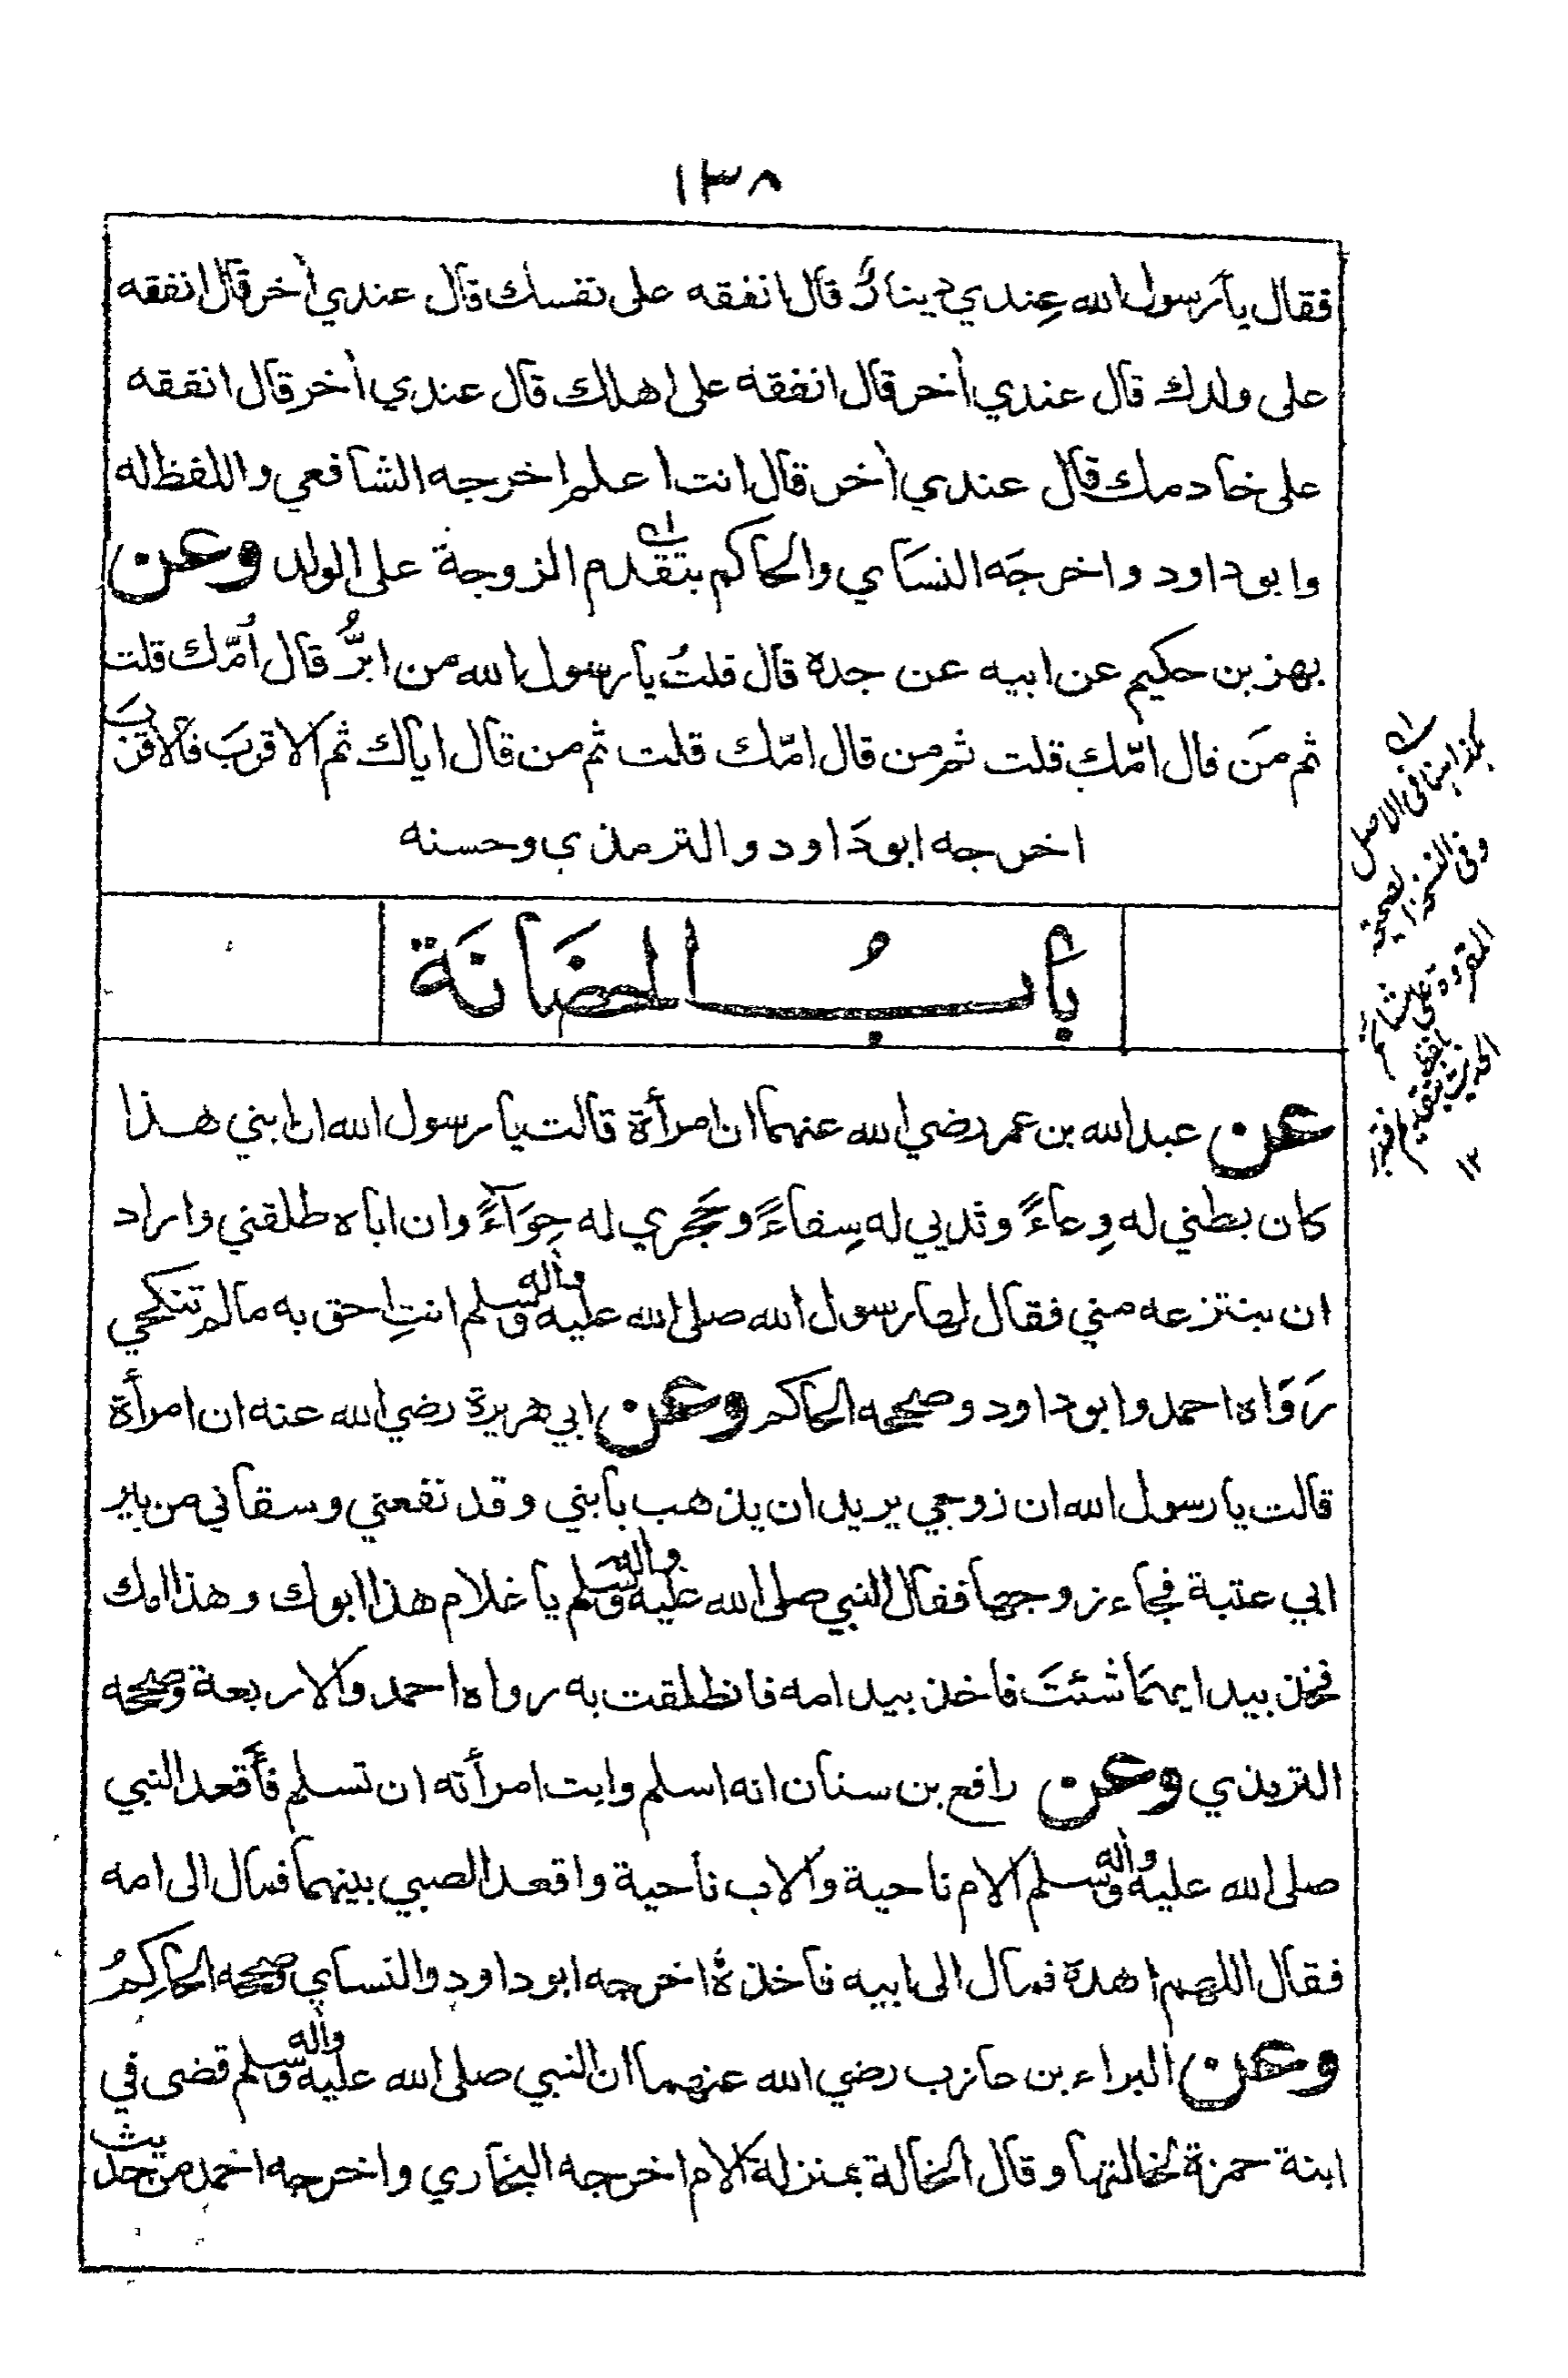 ١٣٨
فقال يا رسول الله عِندي دينارٌ قال انفقه على نفسك قال عندي أخر قال انفقه
على ولدك قال عندي أخر قال انفقه على اهلك قال عندي أخر قال انفقه
على خادمك قال عندي أخر قال انت اعلم اخرجه الشافعي واللفظ له
وابوداود واخرجَه النسَاي والحاكم بتقدم الزوجة على الولد وعن
بهز بن حكيم عن ابيه عن جده قال قلتُ يا رسول الله من ابرُّ قال أمّك قلت
ثم منَ قال امّك قلت ثم من قال امّك قلت ثم من قال اباك ثم الاقربَ فالاقربَ
اخرجه ابودَاود والترمذي وحسنه
بَابُ الحضَانَة
عن عبدالله بن عمر رضي الله عنهما ان امرأة قالت يا رسول الله ان ابني هذا
كان بطني له وِعاءً وثديي له سِقاءً وحَجري له حِوَآءً وان اباه طلقني واراد
ان ينتزعه مني فقال لها رسول الله صلى الله عليه وأله وسلم انتِ احق به مالم تنكحي
رَوَاه احمد وابوداود وصححه الحاكم وعن ابي هريرة رضي الله عنه ان امرأة
قالت يا رسول الله ان زوجي يريد ان يذهب بابني وقد نفعني وسقاني من بير
ابي عتبة فجاء زوجها فقال النبي صلى الله عليه واله وسلم يا غلام هذا ابوك وهذا امك
فخذ بيد ايهمَا شئتَ فاخذ بيد امه فانطلقت به رواه احمد والاربعة وصححه
الترمذي وعن رافع بن سنان انه اسلم وابت امرأته ان تسلم فأقعد النبي
صلى الله عليه وأله وسلم الام ناحية والاب ناحية واقعد الصبي بينهما فمال الى امه
فقال اللهم اهده فمال الى ابيه فاخذهُ اخرجه ابوداود والنساي وصححه الحاكِمُ
وعن البراء بن عازب رضي الله عنهما ان النبي صلى الله عليه وأله وسلم قضى في
ابنة حمزة لخالتها وقال الخالة بمنزلة الام اخرجه البخاري واخرجه احمد من حديث
كذا هنا في الاصل
وفي النسخة
المقروة على
الحديث بتقديم
١٢